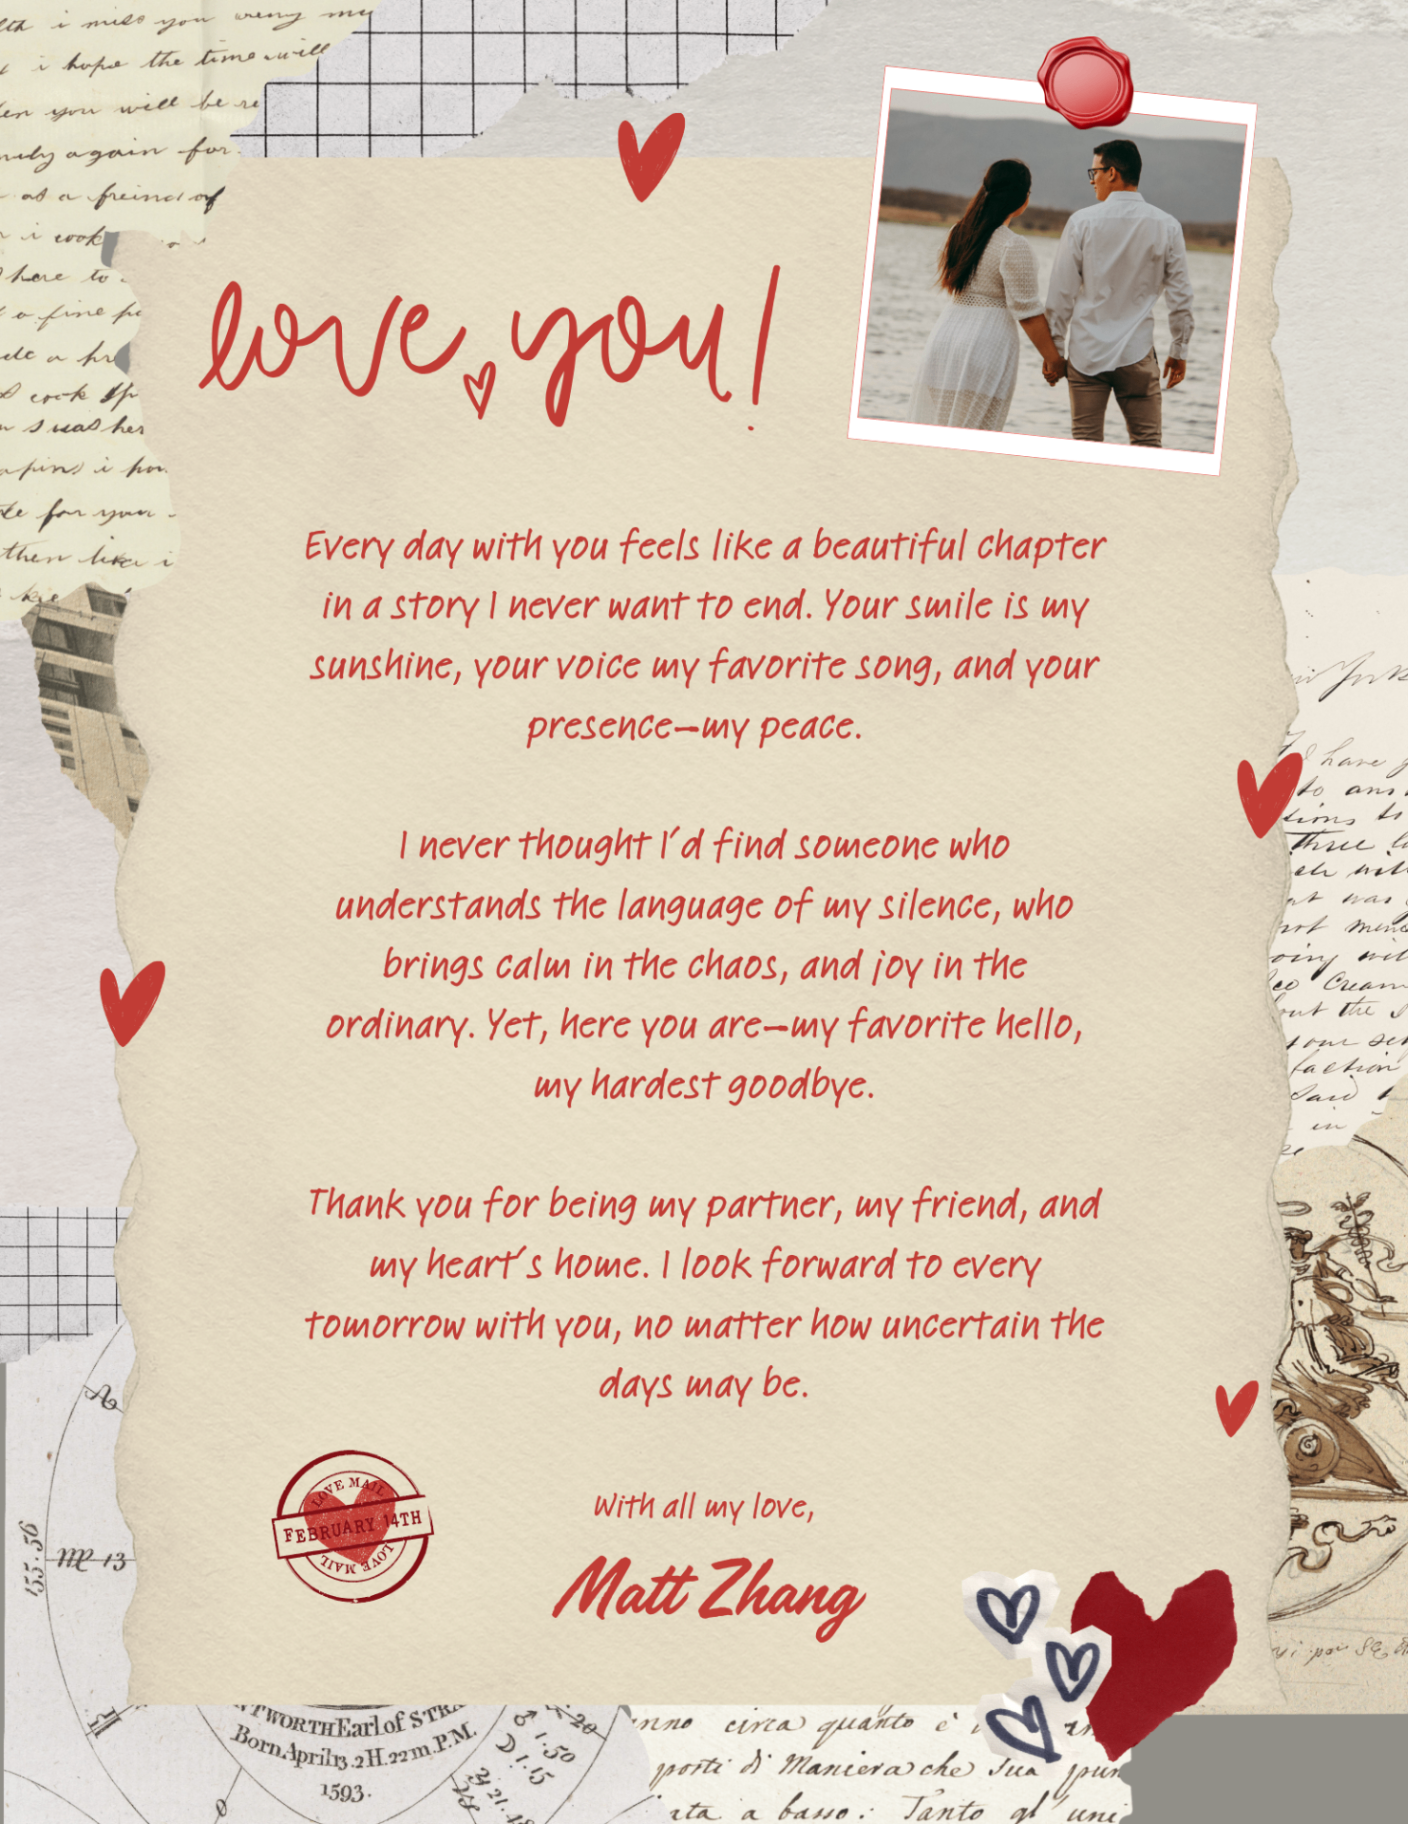 i miss you
i hope the time will
you will be
again for
as a freind of
i cook
here to
a fine
cook
for your
then like i
love you!
Every day with you feels like a beautiful chapter
in a story I never want to end. Your smile is my
sunshine, your voice my favorite song, and your
presence—my peace.
I never thought I'd find someone who
understands the language of my silence, who
brings calm in the chaos, and joy in the
ordinary. Yet, here you are—my favorite hello,
my hardest goodbye.
Thank you for being my partner, my friend, and
my heart's home. I look forward to every
tomorrow with you, no matter how uncertain the
days may be.
With all my love,
Matt Zhang
LOVE MAIL
FEBRUARY 14TH
LOVE MAIL
have
to
Three
was
Cream
the
Said
in
155.56
13
Earl of
Born April 13. 2H. 22m. P.M.
1593.
20
1.50
1.15
circa quanto è
di Maniera che sua
a basso: Tanto gl'